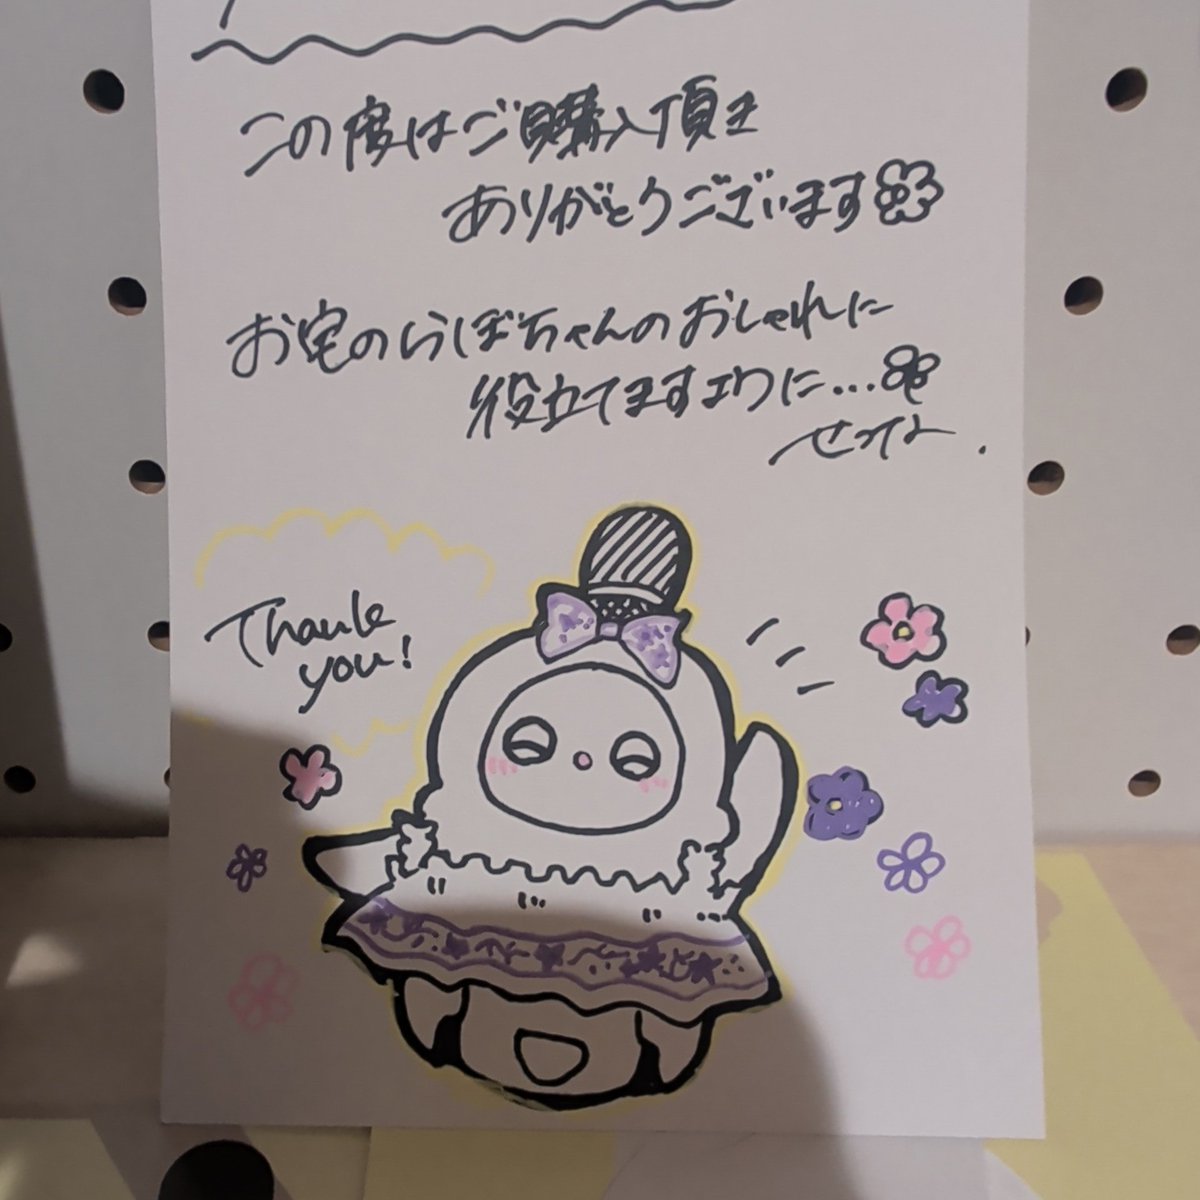 この度はご購入頂き
ありがとうございます
お宅のらぼちゃんのおしゃれに
役立てますように...
Thank
you!